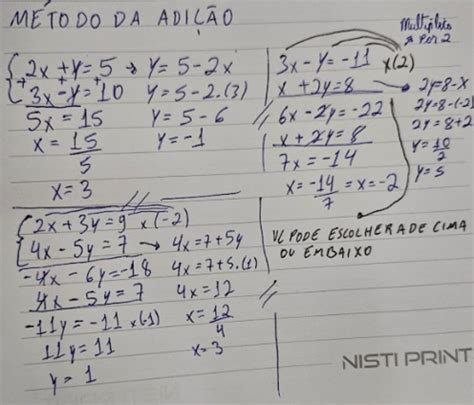 MÉTODO DA ADIÇÃO
2x + y = 5 → y = 5 - 2x
3x - y = 10 y = 5 - 2.(3)
5x = 15 y = 5 - 6
x = 15/5 y = -1
x = 3
Multiplico
Por 2
3x - y = -11 x(2)
x + 2y = 8 → 2y = 8 - x
6x - 2y = -22 2y = 8 - (-2)
x + 2y = 8 2y = 8 + 2
7x = -14 y = 10/2
x = -14/7 = x = -2 y = 5
VC PODE ESCOLHER A DE CIMA
OU EMBAIXO
2x + 3y = 9 x(-2)
4x - 5y = 7 → 4x = 7 + 5y
-4x - 6y = -18 4x = 7 + 5.(1)
4x - 5y = 7 4x = 12
-11y = -11 x(-1) x = 12/4
11y = 11 x = 3
y = 1
NISTI PRINT